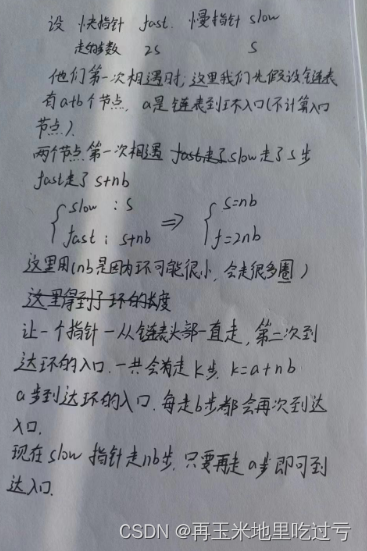 设 快指针 fast. 慢指针 slow
走的步数 2s s
他们第一次相遇时,这里我们先假设链表
有a+b个节点, a是链表到环入口(不计算入口
节点).
两个节点第一次相遇 fast走了slow走了s步
fast走了 s+nb
slow : s ⇒ s=nb
fast : s+nb f=2nb
这里用(nb是因为环可能很小,会走很多圈)
这里得到了环的长度
让一个指针一从链表头部一直走,第二次到
达环的入口.一共会走k步. k=a+nb
a步到达环的入口.每走b步都会再次到达
入口.
现在slow 指针走nb步,只要再走a步即可到
达入口.
CSDN @再玉米地里吃过亏